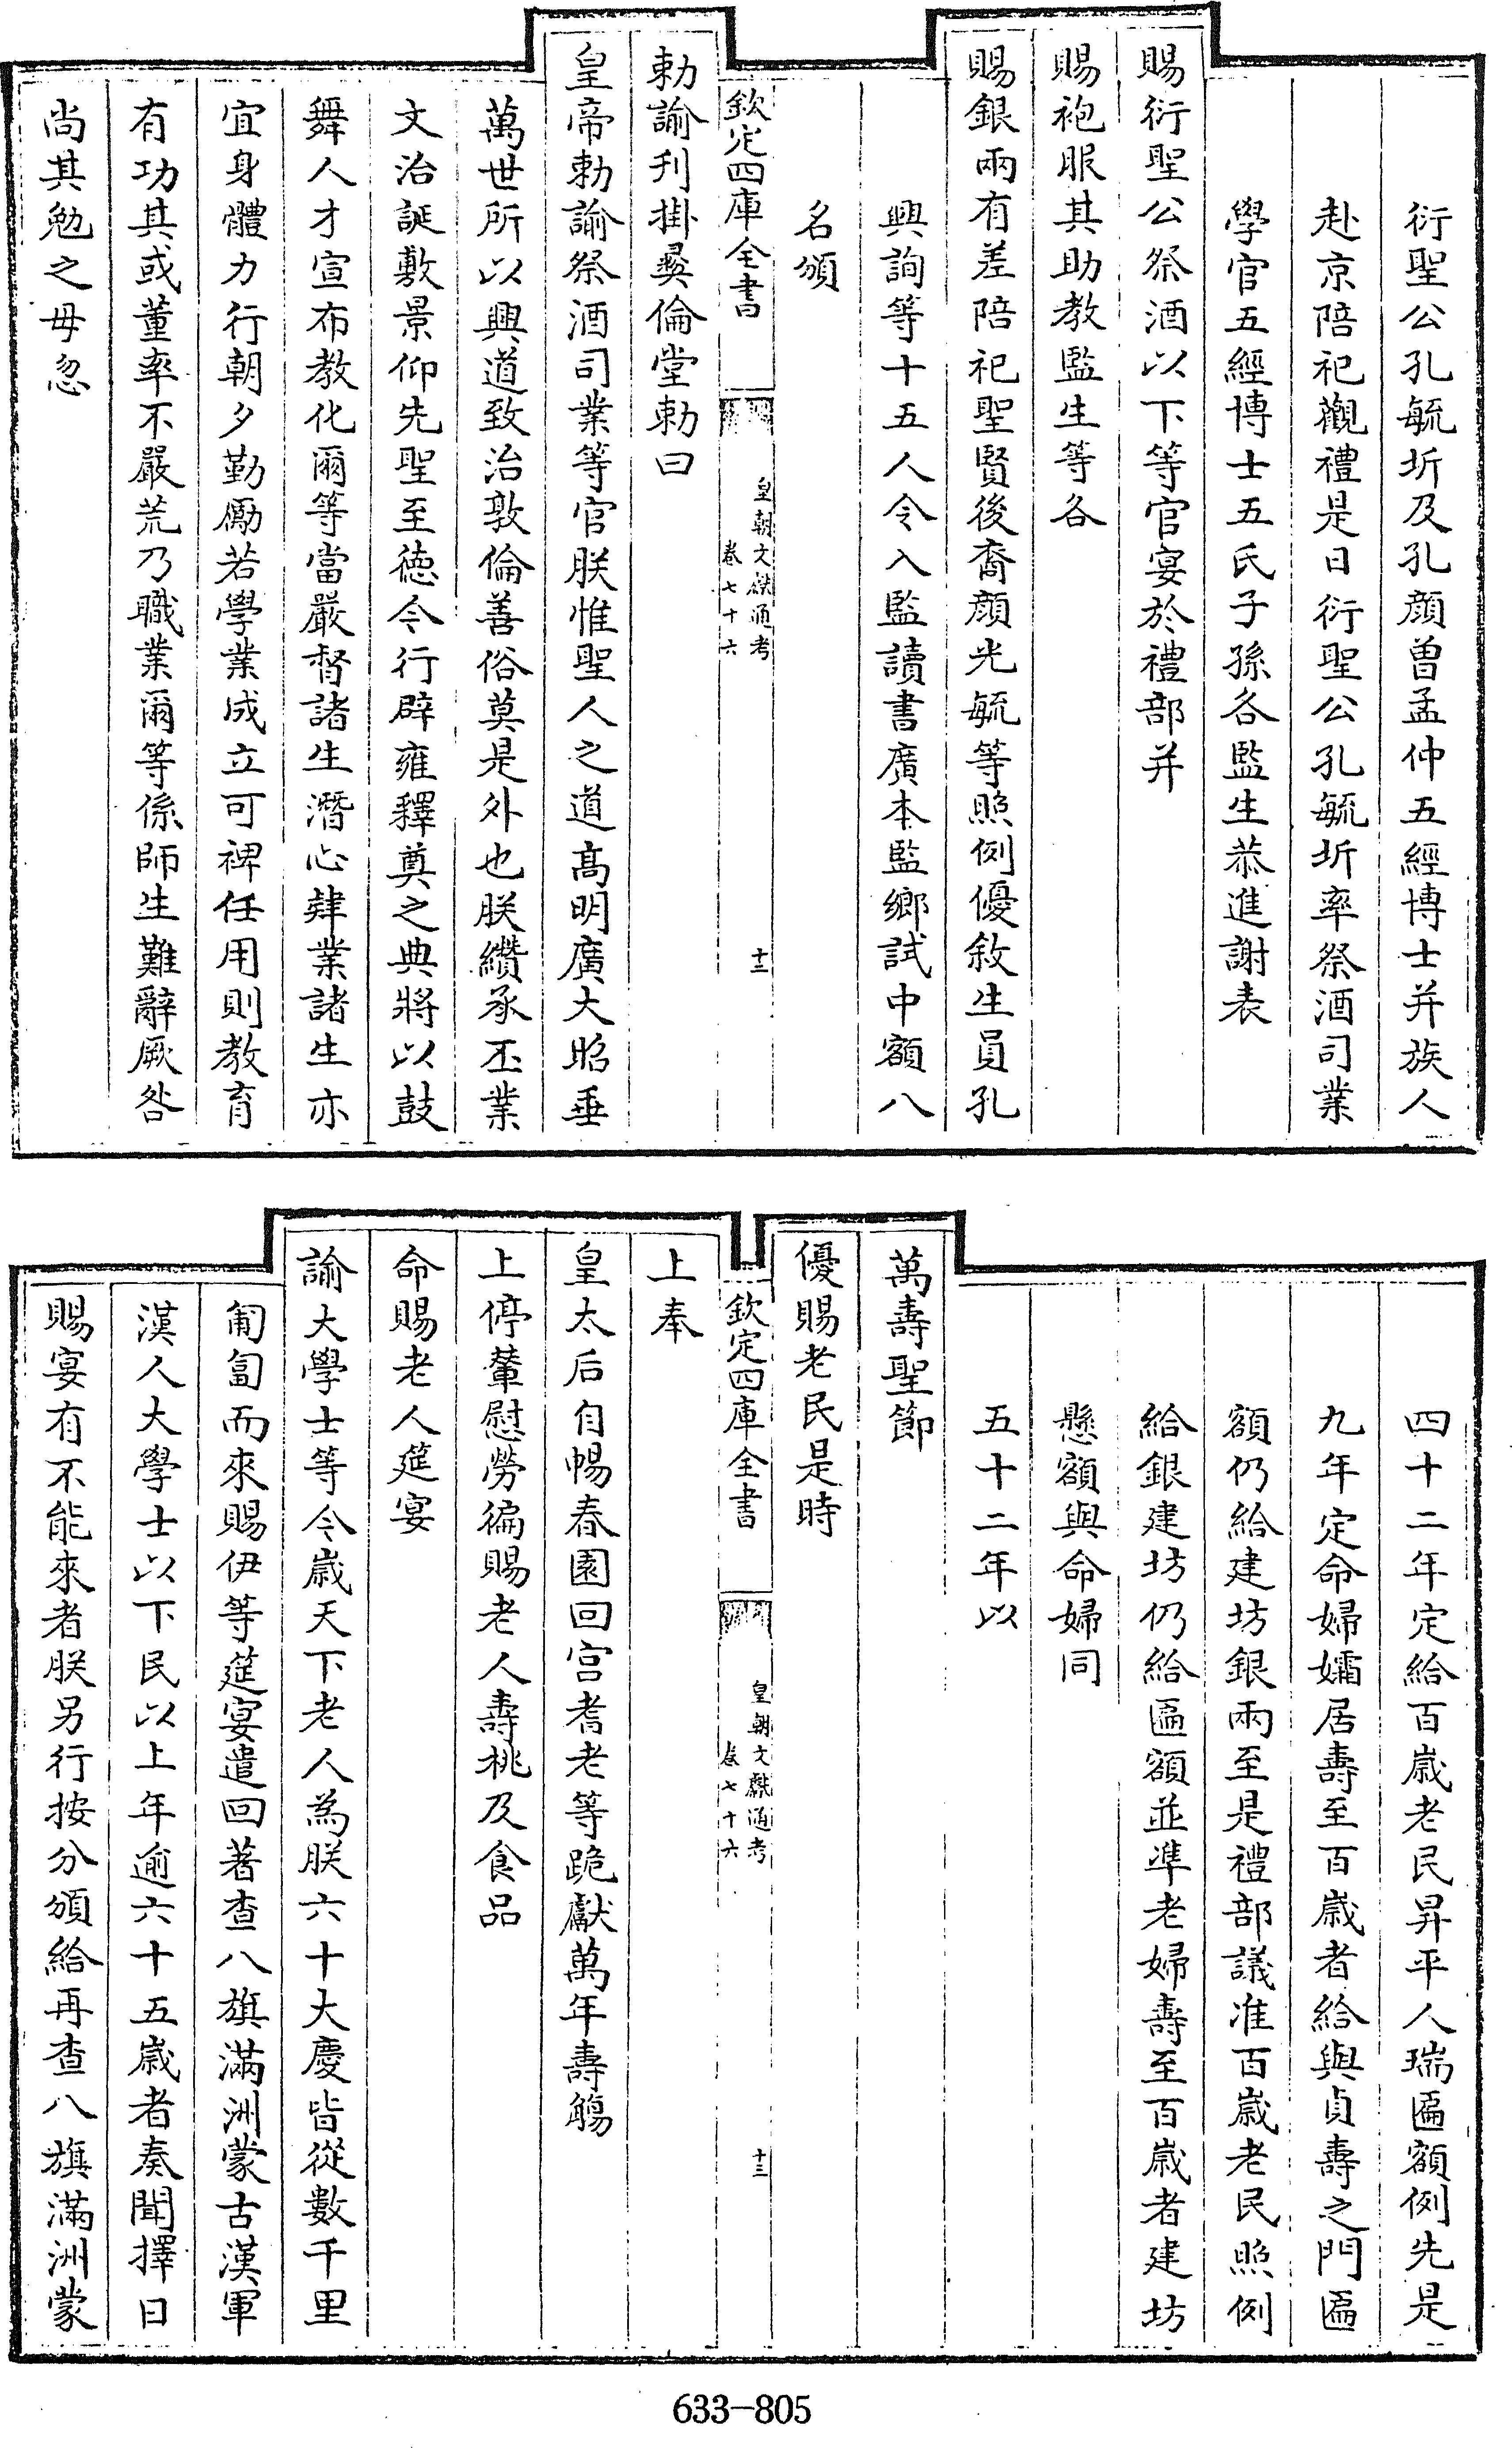 衍聖公孔毓圻及孔顏曽孟仲五經博士并族人
赴京陪祀觀禮是日衍聖公孔毓圻率祭酒司業
學官五經博士五氏子孫各監生恭進謝表
賜衍聖公祭酒以下等官宴於禮部并
賜袍服其助教監生等各
賜銀兩有差陪祀聖賢後裔顔光毓等照例優敘生員孔
興詢等十五人令入監讀書廣本監鄉試中額八
名頒
欽定四庫全書
皇朝文獻通考
卷七十六
十二
勅諭刋掛彛倫堂勅曰
皇帝勅諭祭酒司業等官朕惟聖人之道髙明廣大昭垂
萬世所以興道致治敦倫善俗莫是外也朕纘承丕業
文治誕敷景仰先聖至徳今行辟雍釋奠之典將以鼓
舞人才宣布教化爾等當嚴督諸生潛心肄業諸生亦
宜身體力行朝夕勤勵若學業成立可裨任用則教育
有功其或董率不嚴荒乃職業爾等係師生難辭厥咎
尚其勉之毋忽
四十二年定給百歳老民昇平人瑞匾額例先是
九年定命婦孀居壽至百歳者給與貞壽之門匾
額仍給建坊銀兩至是禮部議准百歳老民照例
給銀建坊仍給匾額並凖老婦壽至百歳者建坊
懸額與命婦同
五十二年以
萬壽聖節
優賜老民是時
欽定四庫全書
皇朝文獻通考
卷七十六
十三
上奉
皇太后自暢春園回宫耆老等跪獻萬年壽觴
上停輦慰勞徧賜老人壽桃及食品
命賜老人筵宴
諭大學士等今歳天下老人為朕六十大慶皆從數千里
匍匐而來賜伊等筵宴遣回著查八旗滿洲蒙古漢軍
漢人大學士以下民以上年逾六十五歳者奏聞擇日
賜宴有不能來者朕另行按分頒給再查八旗滿洲蒙
633-805